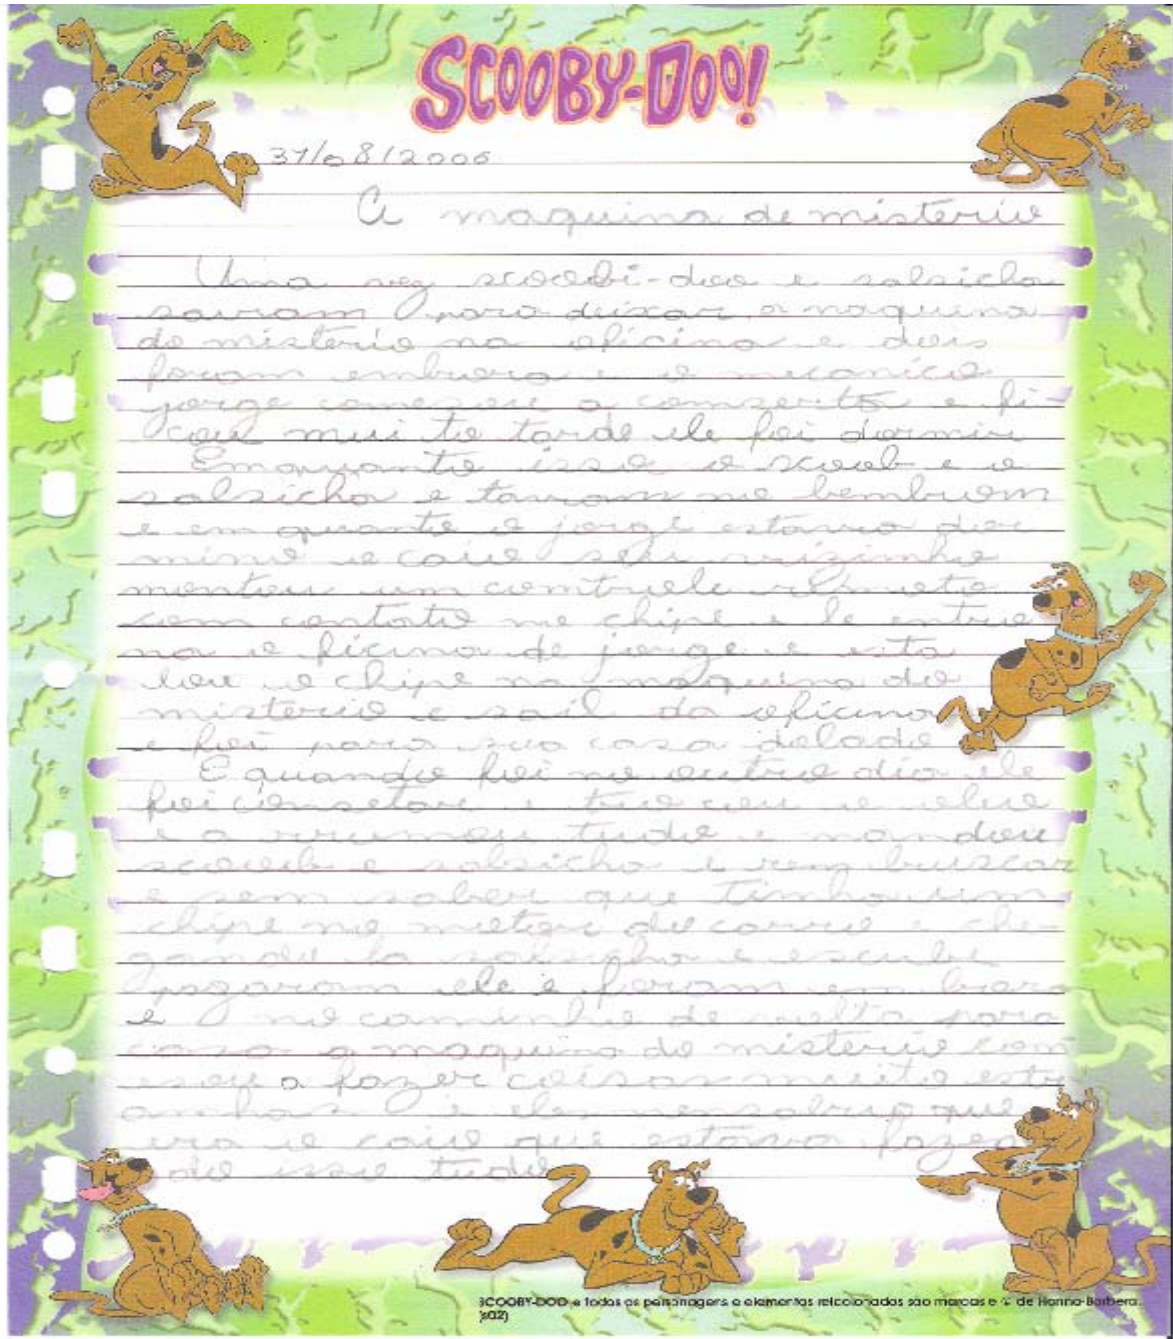 SCOOBY-DOO!
31/08/2006
A maquina de misterio
Uma vez scoobi-doo e salsicha
sairam para deixar a maquina
do misterio na oficina e dois
foram embora e o mecanico
jorge comesou a conserta e fi-
cou mui to tarde ele foi dormir
Emquanto isso o scoob e o
salsicha e tavam no bembom
e em quanto o jorge estava dor
mino o caio seu vizinho
montou um controle remoto
com contato no chipe e le entro
na o ficina de jorge e esta
lou o chipe na maquina do
misterio e sail da oficina
e foi para sua casa dolado
E quando foi no outro dia ele
foi consetar e tro cou o oleo
e a rrumou tudo e mandou
scoob e salsicha i rem buscar
e sem saber que tinha um
chipe no motor do carro e che-
gando la salsicha e escubi
pgaram ele e foram em bora
e no caminho de volta para
casa a maquina do misterio com
esou a fazer coisas muito estr
anhas e eles que
era o caio que estava fazen
do isso tudo
SCOOBY-DOO e todos os personagens e elementos relacionados são marcas e © de Hanna-Barbera.
(s02)